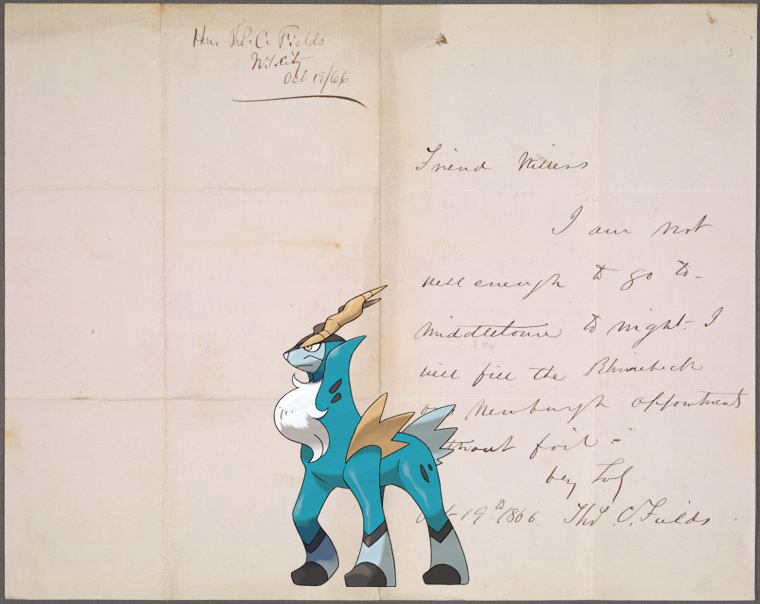 Hon Tho. C. Fields
N.Y. City
Oct 19/66
Friend
I am not
well enough to go to-
Middletown to night- I
will fill the Rhinebeck
Newburgh appointments
fail -
Oct-19th 1866. Tho. C. Fields.